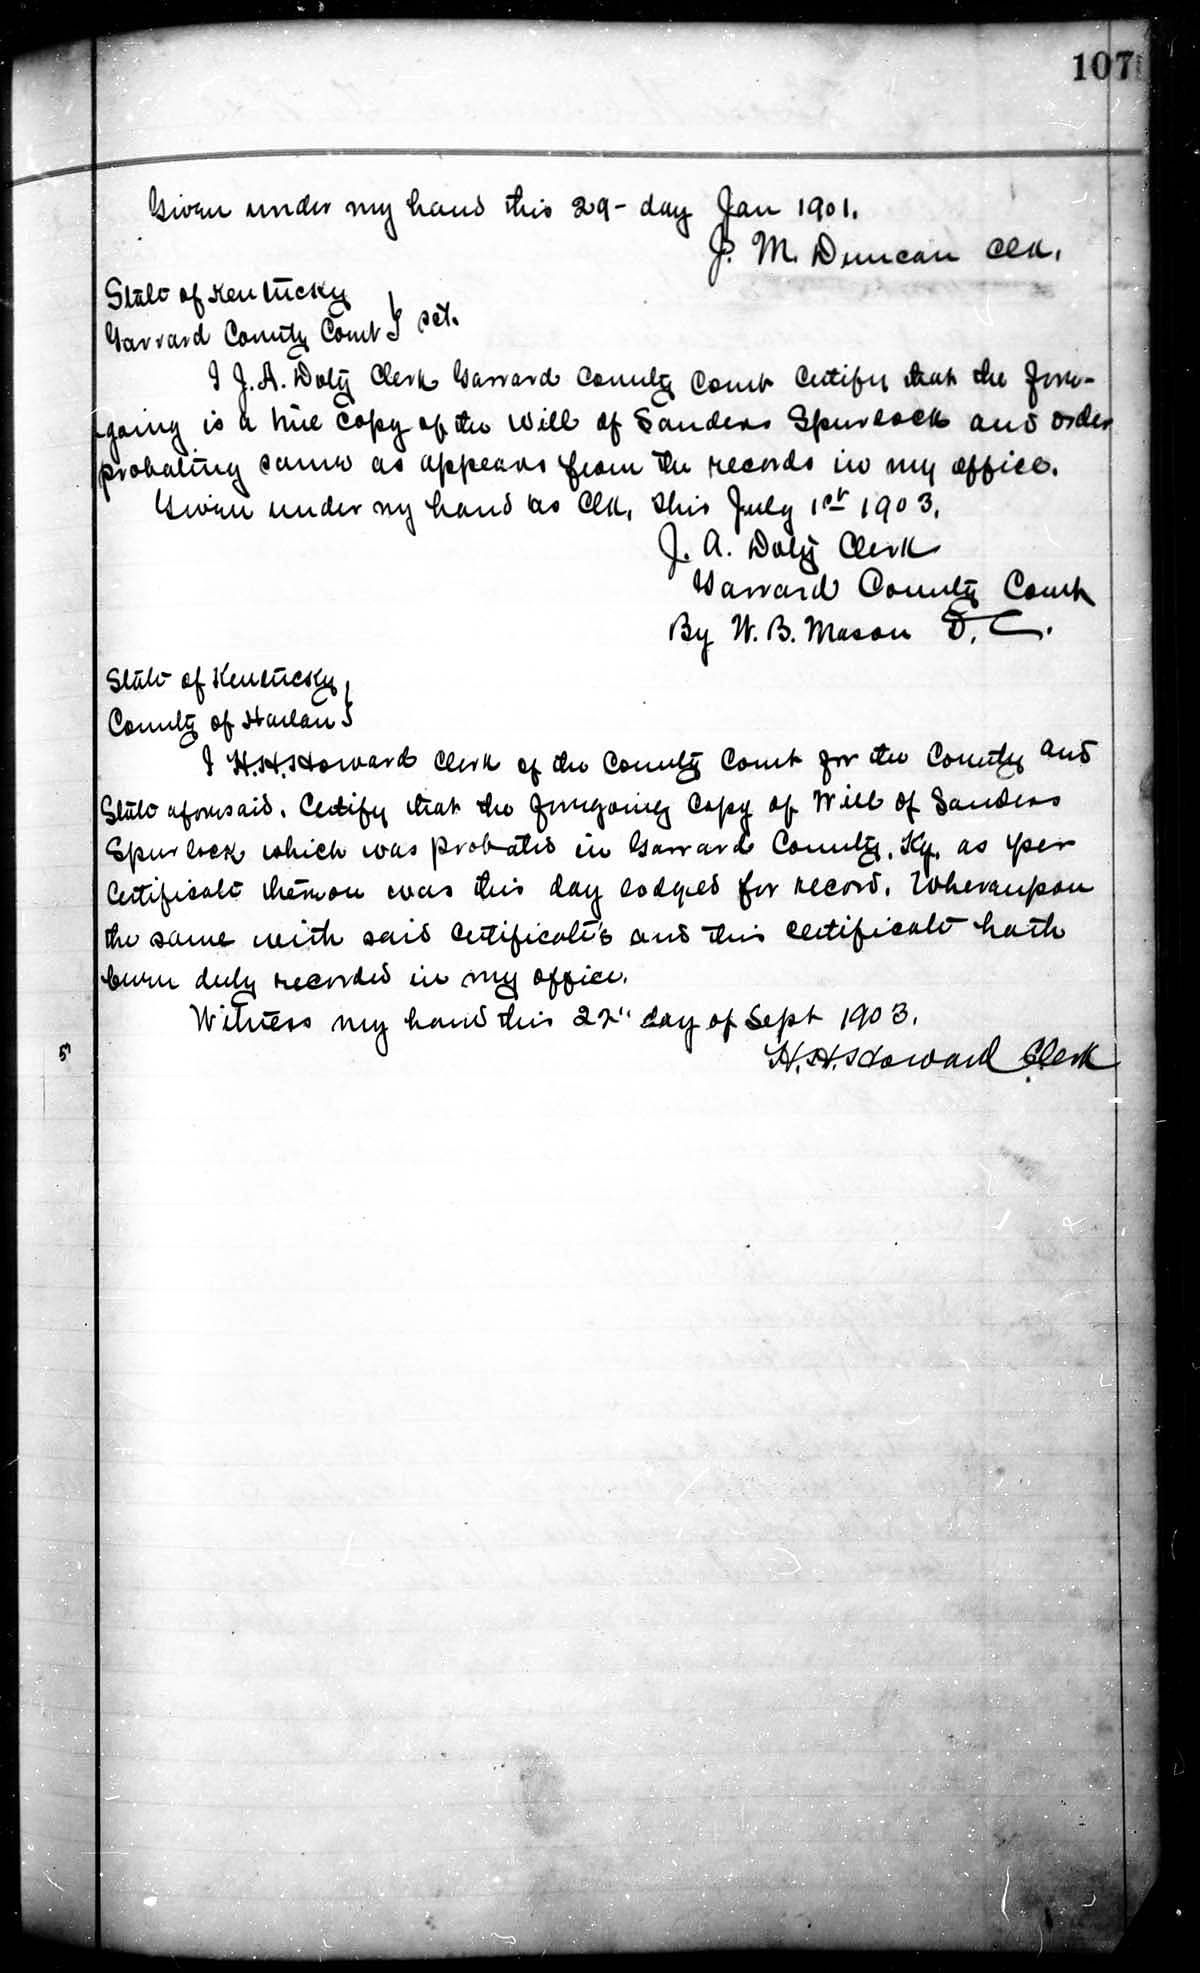 107
Given under my hand this 29- day Jan 1901.
J. M. Duncan Clk.
State of Kentucky
Garrard County Court } sct.
I J. A. Doty Clerk Garrard County Court Certify that the fore-
going is a true copy of the Will of Sanders Spurlock and order
probating same as appears from the records in my office.
Given under my hand as Clk, this July 1st 1903.
J. A. Doty Clerk
Garrard County Court
By W. B. Mason D. C.
State of Kentucky
County of Harlan }
I H. H. Howard Clerk of the County Court for the County and
State aforesaid. Certify that the foregoing Copy of Will of Sanders
Spurlock which was probated in Garrard County, Ky. as per
Certificate thereon was this day lodged for record. Whereupon
the same with said Certificate's and this certificate hath
been duly recorded in my office.
Witness my hand this 22" day of Sept 1903.
H. H. Howard Clerk